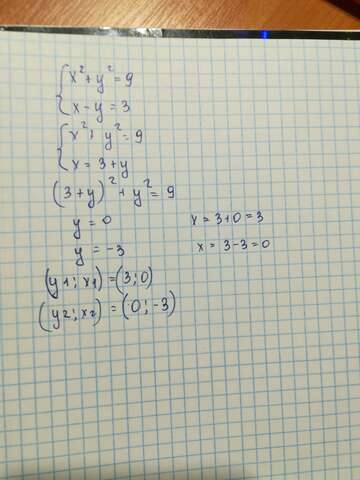 x² + y² = 9
x - y = 3
x² ; y² = 9
x = 3 + y
(3 + y)² + y² = 9
y = 0 x = 3 + 0 = 3
y = -3 x = 3 - 3 = 0
(y1 ; x1) = (3 ; 0)
(y2 ; x2) = (0 ; -3)